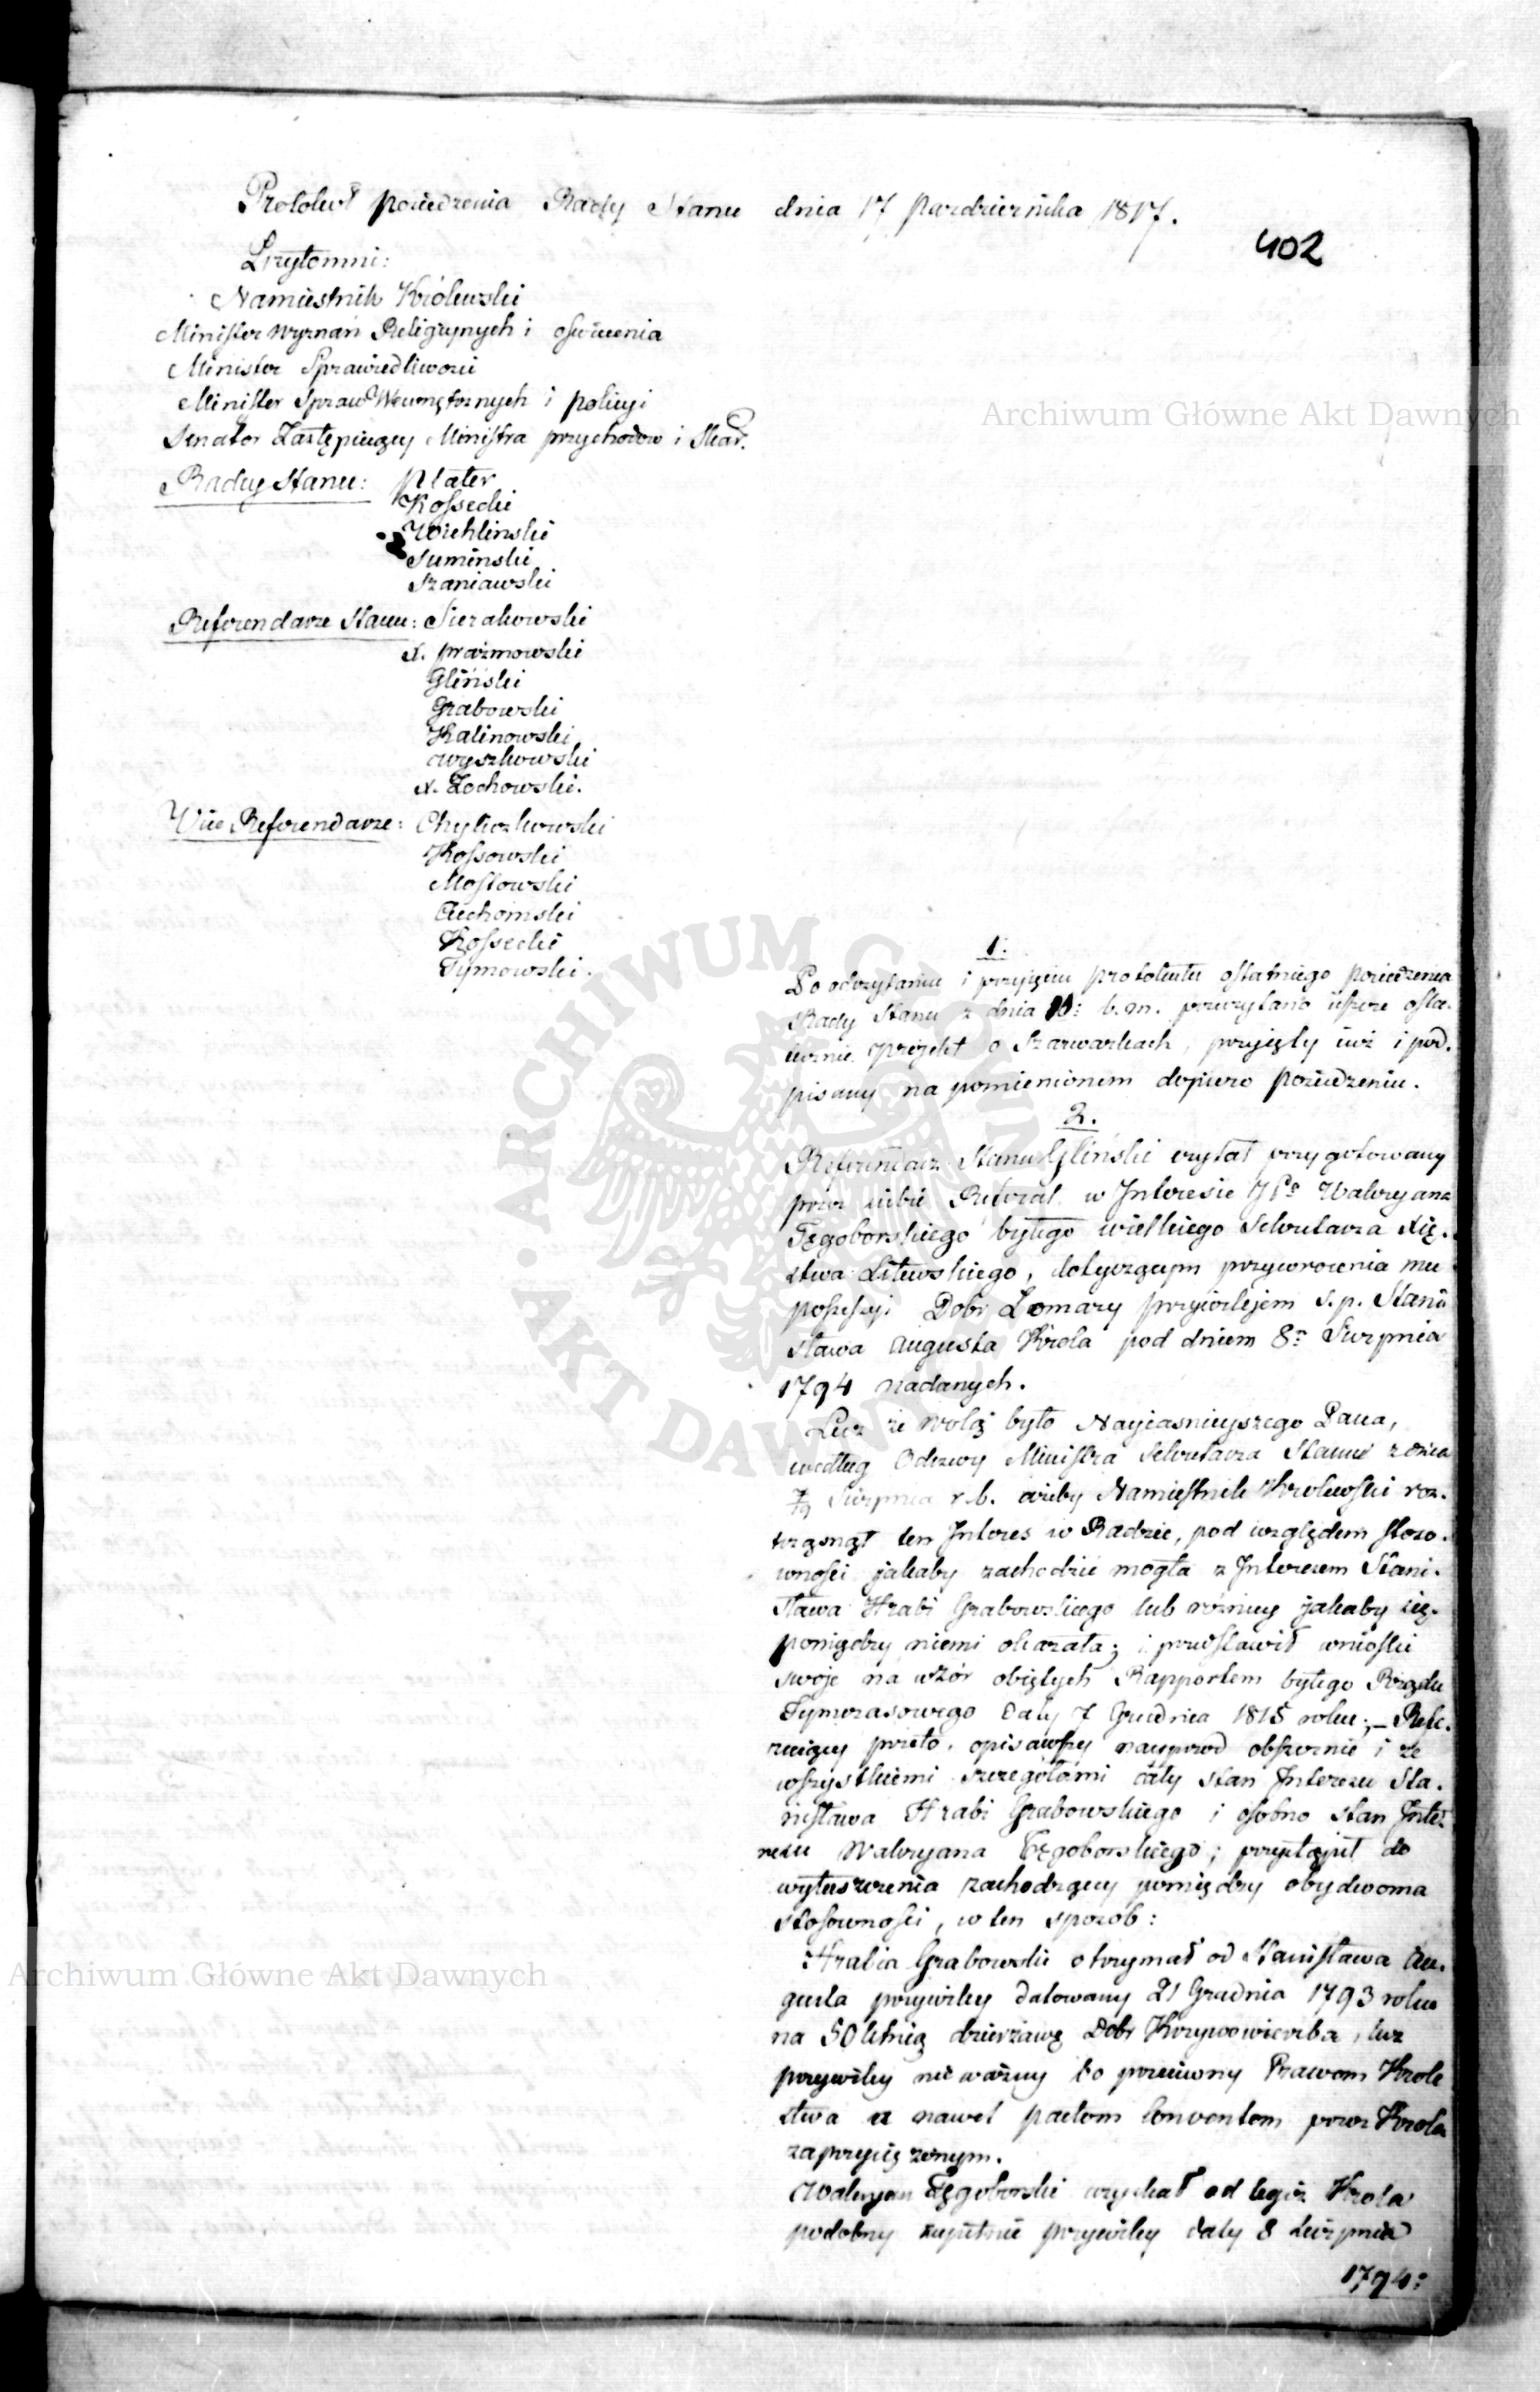 Protokuł posiedzenia Rady Stanu dnia 17 Pazdziernika 1817.
402
Przytomni:
Namiestnik Królewski
Minister Wyznań Religijnych i oświecenia
Minister Sprawiedliwości
Minister Spraw Wewnętrznych i policyi
Senator Zastępuiący Ministra przychodow i Skar.
Radcy Stanu: Plater
Kossecki
Woehlinski
Suminski
Szaniawski
Referendarze Stanu: Sierakowski
X. prażmowski
Gliński
Grabowski
Kalinowski
Wyszkowski
X. Żochowski.
Vice Referendarze: Chyliczkowski
Kossowski
Mostowski
Ciechomski
Kossecki
Tymowski.
1.
Po odczytaniu i przyięciu protokułu ostatniego posiedzenia
Rady Stanu z dnia 10: b. m. przeczytano ieszcze osta-
tecznie projekt o Szarwarkach, przyięty iuż i pod-
pisany na pomienionem dopiero posiedzeniu.
2.
Referendarz Stanu Gliński czytał przygotowany
przez siebie Referat w Interesie JPa Waleryana
Tęgoborskiego byłego wielkiego Sekretarza Xię-
stwa Litewskiego, dotyczącym przywrocenia mu
possessyi Dobr Łomazy przywilejem ś. p. Stani
sława Augusta Krola pod dniem 8: Sierpnia
1794 nadanych.
Lecz że wolą było Nayiasnieyszego Pana,
według Odezwy Ministra Sekretarza Stanu z dnia
7/19 Sierpnia r. b. ażeby Namiestnik Krolewski roz-
trząsnął ten Interes w Radzie, pod względem stoso-
wności jakaby zachodzić mogła z Interesem Stani-
sława Hrabi Grabowskiego lub różnicy jakaby się
pomiędzy niemi okazała; i przedstawił wnioski
swoje na wzór obiętych Rapportem byłego Rządu
Tymczasowego daty 7 Grudnia 1815 roku; – Refe-
ruiący przeto, opisawszy nayprzod obszernie i ze
wszystkiemi szczegółami cały stan Interesu Sta-
nisława Hrabi Grabowskiego i osobno stan Inte-
resu Waleryana Tęgoborskiego; przystąpił do
wyłuszczenia zachodzącey pomiędzy obydwoma
stosowności, w ten sposób:
Hrabia Grabowski otrzymał od Stanisława Au-
gusta przywiley datowany 21 Grudnia 1793 roku
na 50 letnią dzierżawę Dobr Krzywowierzba, lecz
przywiley nie ważny bo przeciwny Prawom Krole
stwa a nawet pactom conventom przez Krola
zaprzysiężonym.
Waleryan Tęgoborski uzyskał od tegoż Krola
podobny zupełnie przywiley daty 8 Sierpnia
1794:
Archiwum Główne Akt Dawnych
Archiwum Główne Akt Dawnych
ARCHIWUM GŁÓWNE AKT DAWNYCH